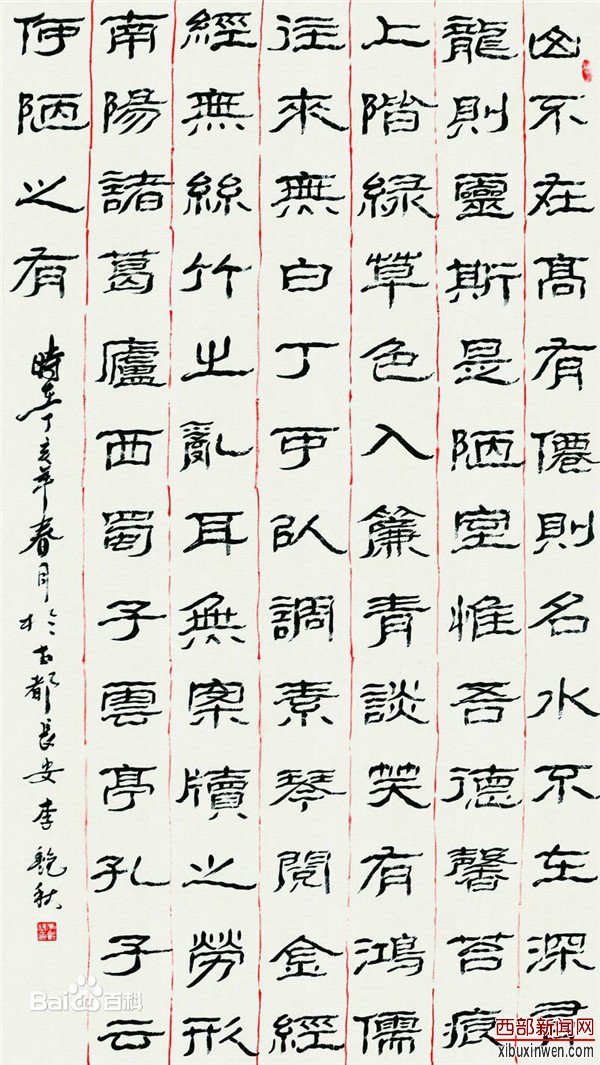 山不在高有僊則名水不在深有
龍則靈斯是陋室惟吾德馨苔痕
上階緑草色入簾青談笑有鴻儒
往來無白丁可以調素琴閱金經
經無絲竹之亂耳無案牘之勞形
南陽諸葛廬西蜀子雲亭孔子云
何陋之有
時在丁亥年春月於古都長安李秋
Bai百科
西部新闻网
xibuxinwen.com